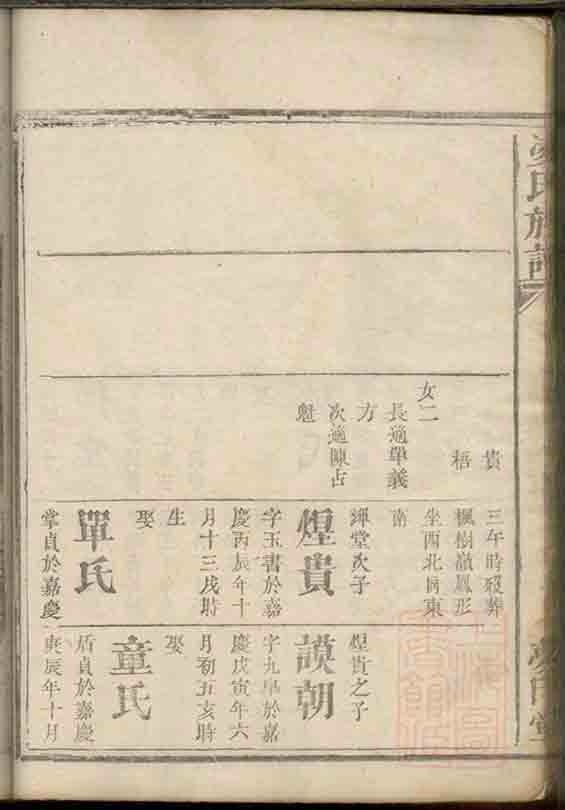 氏族譜
貴
梧
女二
長適單義
方
次適陳占
魁
三午時歿葬
楓樹嶺鳳形
坐西北向東
南
煇堂次子
煌貴
字玉書於嘉
慶丙辰年十
月十三戌時
生
娶
單氏
掌貞於嘉慶
煌貴之子
謨朝
字九皐於嘉
慶戊寅年六
月初五亥時
娶
童氏
盾貞於嘉慶
庚辰年十月